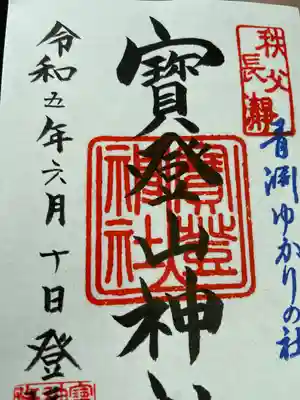 秩父
長瀞
青淵ゆかりの社
寶登山神
寶登山
神社
令和五年六月十日登